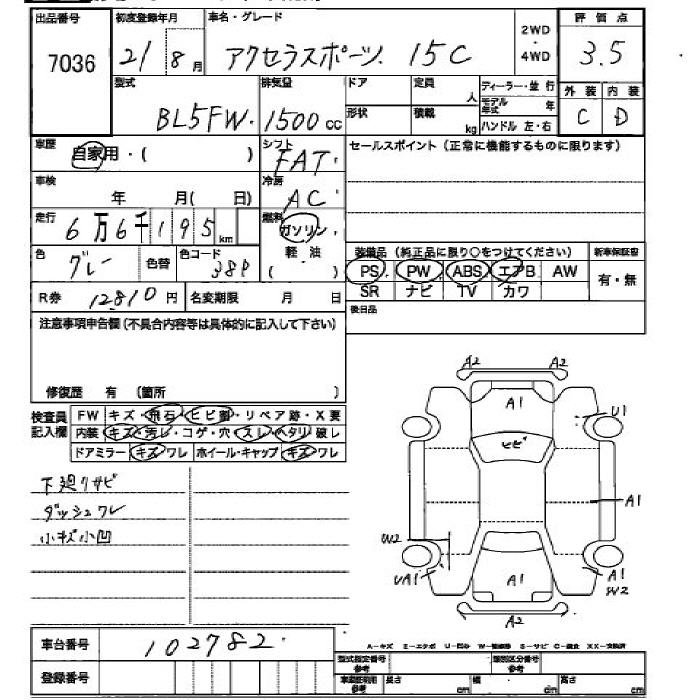 出品番号 初度登録年月 車名・グレード 2WD・4WD 評価点
7036 21 8月 アクセラスポーツ. 15C 3.5
型式 排気量 ドア 定員 人 ディーラー・並行 外装 内装
BL5FW. 1500cc 形状 積載 kg モデル年式 年 C D
ハンドル 左・右
車歴 自家用・( ) シフト FAT セールスポイント(正常に機能するものに限ります)
車検 年 月( 日) 冷房 AC
走行 6万6千195km 燃料 ガソリン・軽油( )
色 グレー 色替 色コード 38P 装備品(純正品に限り○をつけてください) 新車保証書
PS. PW ABS エアB AW 有・無
SR ナビ TV カワ
R券 12810円 名変期限 月 日 後日品
注意事項申告欄(不具合内容等は具体的に記入して下さい)
修復歴 有 (箇所 )
検査員記入欄 FW キズ・飛石・ヒビ割・リペア跡・X要
内装 キズ・汚レ・コゲ・穴・スレ・ヘタリ・破レ
ドアミラー キズ・ワレ ホイール・キャップ キズ・ワレ
下廻リサビ
ダッシュワレ
小キズ小凹
A2 A2
A1 U1
ヒビ
A1
W2
UA1 A1 A1
W2
A2
車台番号 102782
登録番号
A－キズ E－エクボ U－凹み W－補修跡 S－サビ C－腐食 XX－交換済
型式指定番号 参考 類別区分番号 参考
車庫証明用 参考 長さ cm 幅 cm 高さ cm